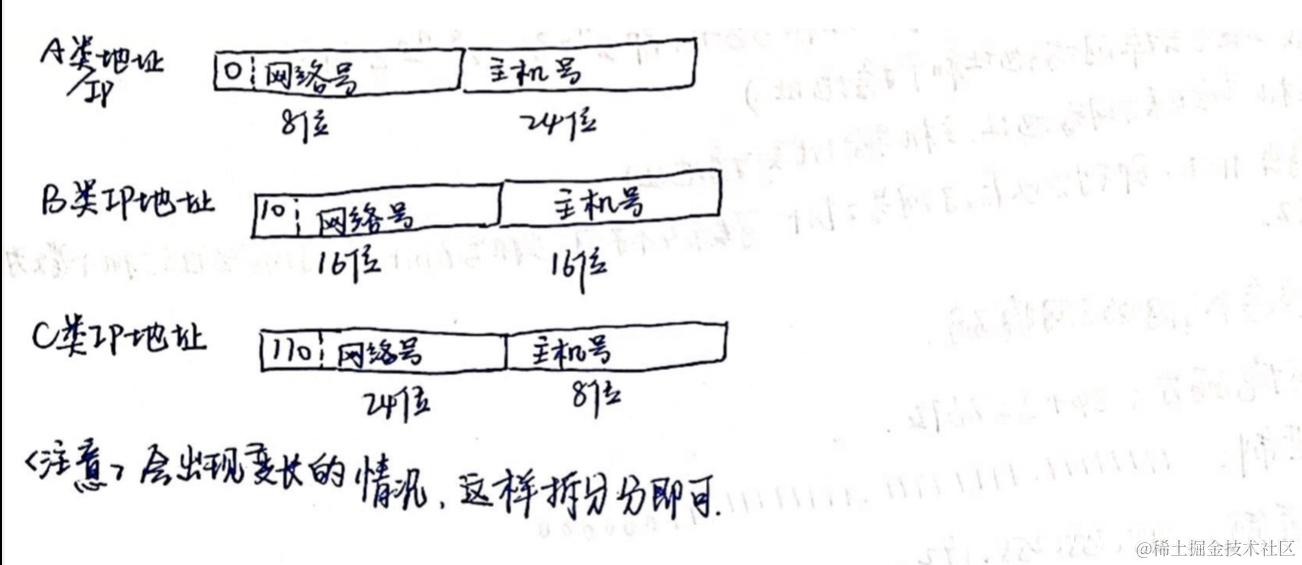 A类地址
IP
0 网络号 主机号
8位 24位
B类IP地址 10 网络号 主机号
16位 16位
C类IP地址 110 网络号 主机号
24位 8位
<注意> 会出现变长的情况,这样拆分分即可.
@稀土掘金技术社区